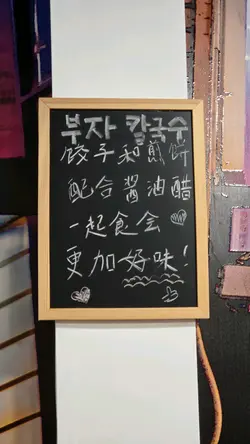 부자 칼국수
餃子和煎餅
配合醬油醋
一起食会
更加好味!